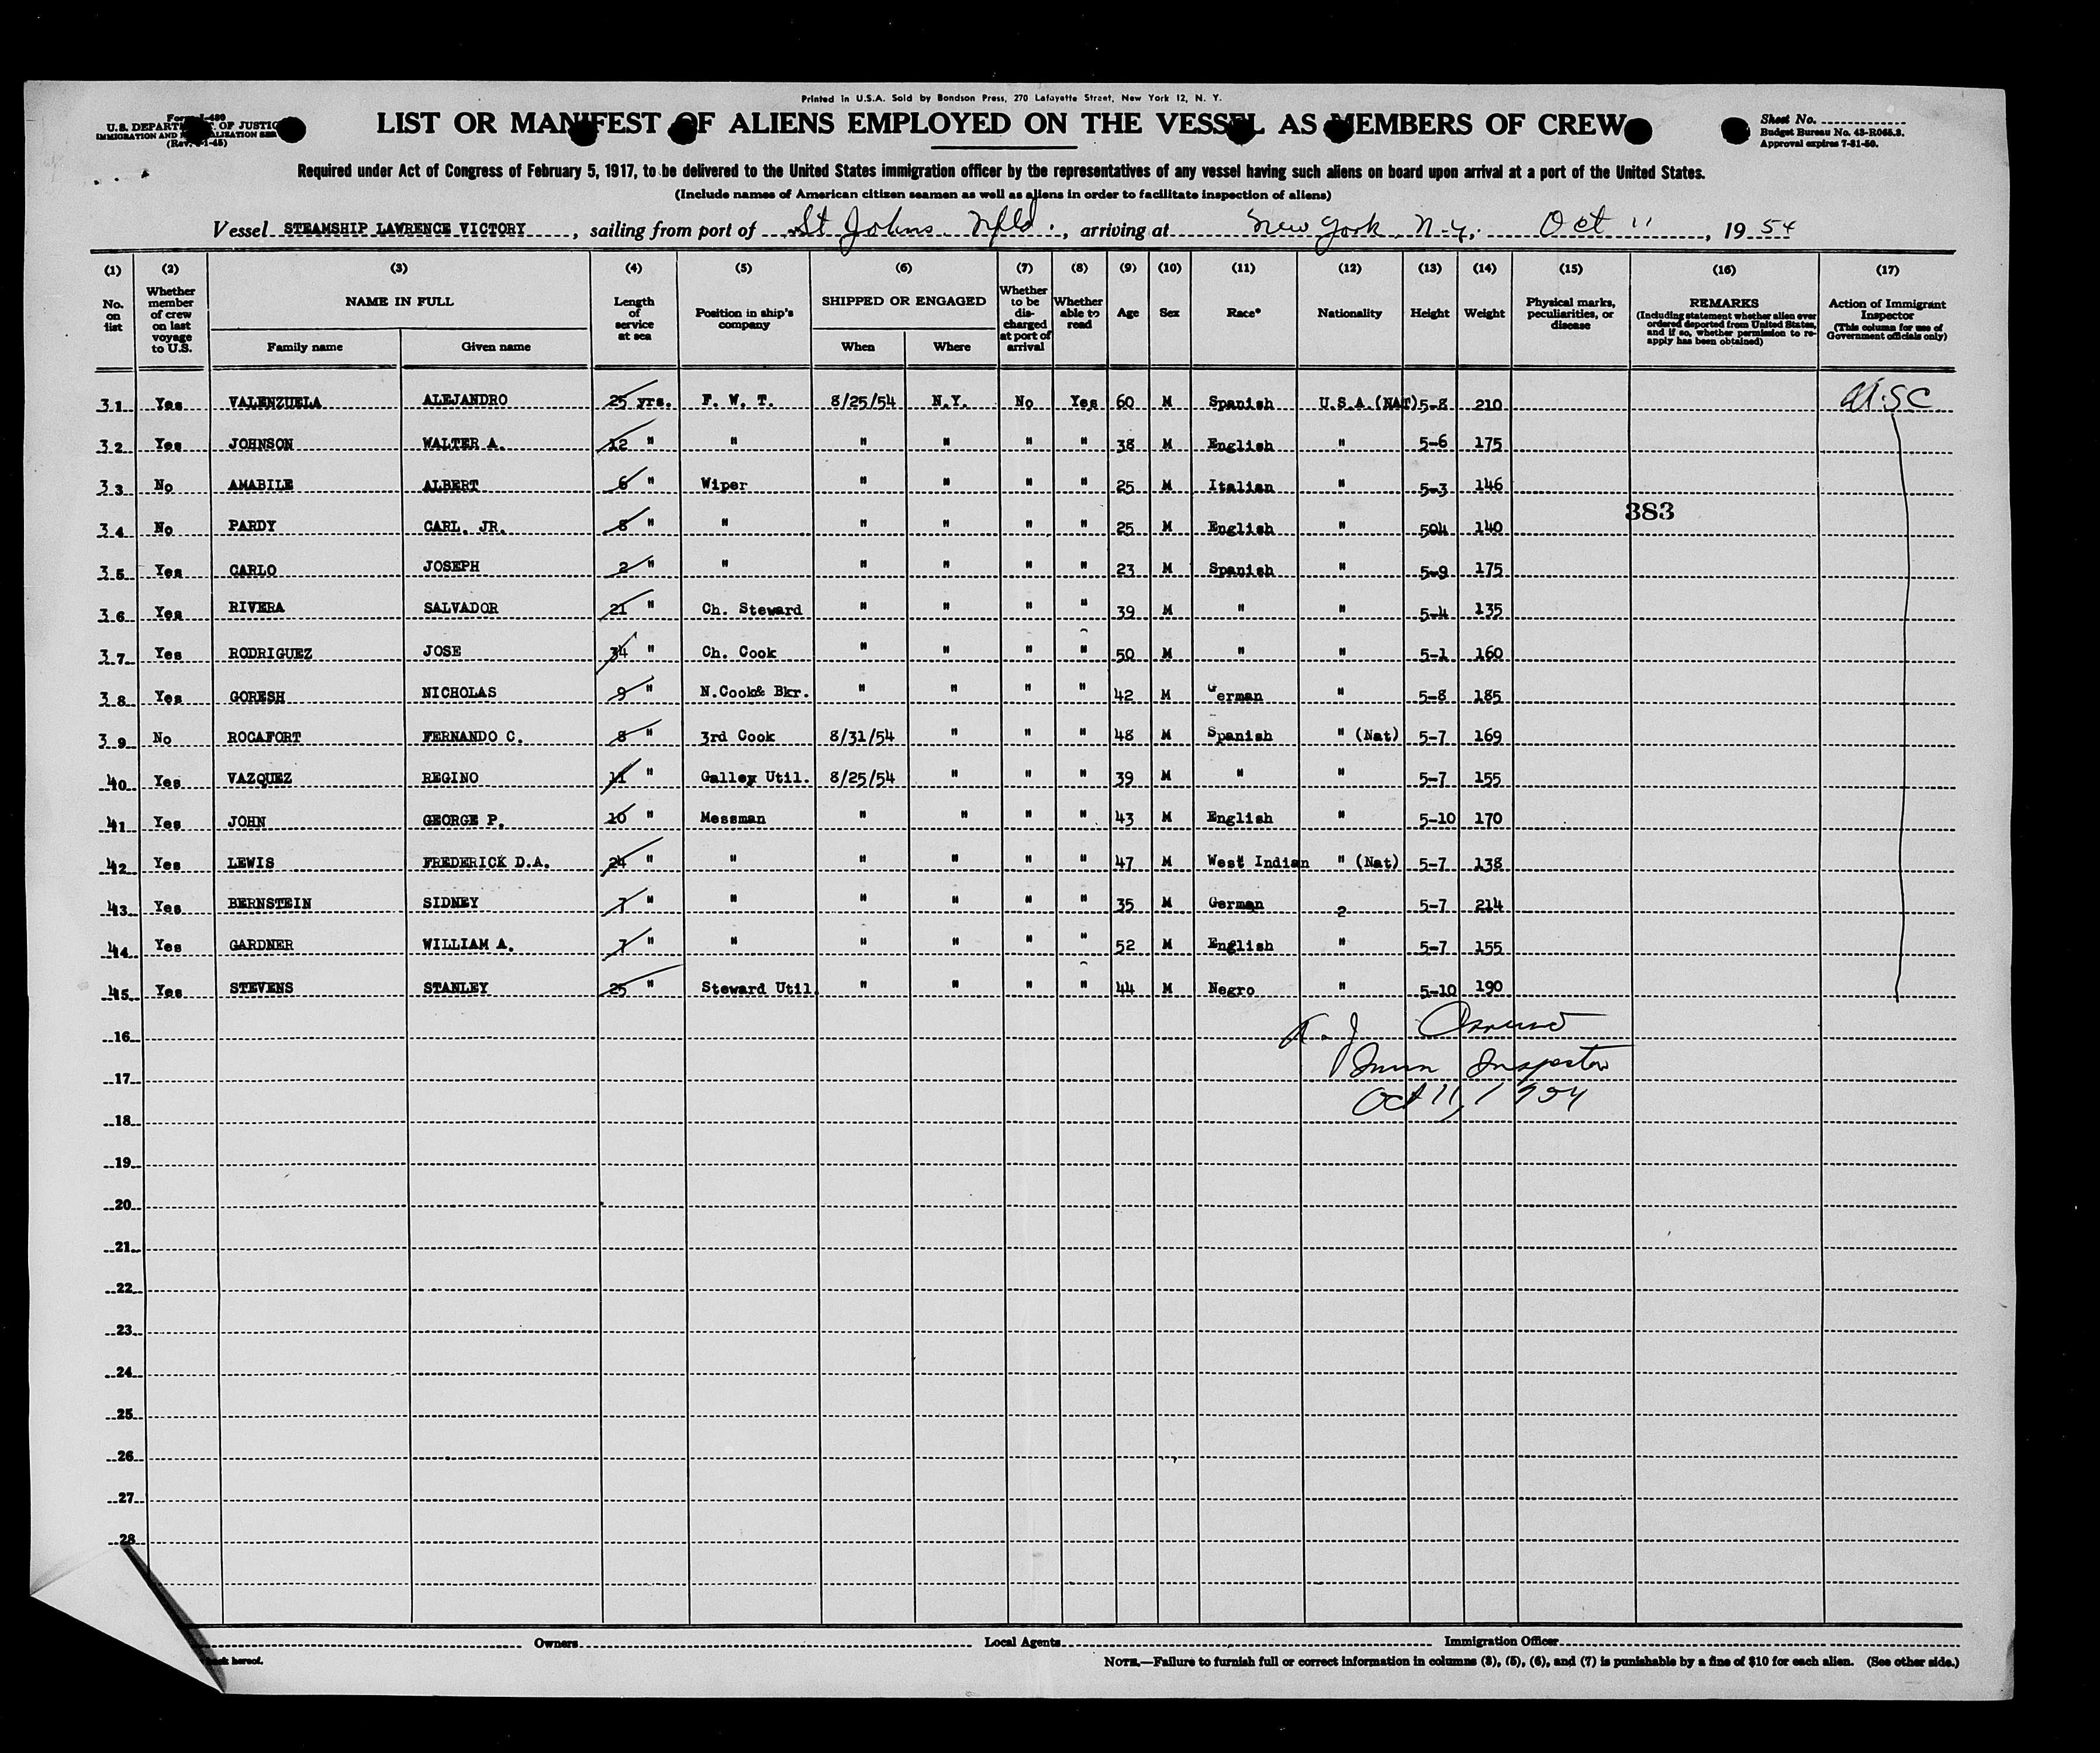 Printed in U.S.A. Sold by Bondson Press, 270 Lafayette Street, New York 12, N. Y.
U.S. DEPART OF JUSTIC
IMMIGRATION AND
LIST OR MANIFEST OF ALIENS EMPLOYED ON THE VESSEL AS MEMBERS OF CREW
Sheet No.
Budget Bureau No. 43-R065.3.
Approval expires 7-31-50.
Required under Act of Congress of February 5, 1917, to be delivered to the United States immigration officer by the representatives of any vessel having such aliens on board upon arrival at a port of the United States.
(Include names of American citizen seamen as well as aliens in order to facilitate inspection of aliens)
Vessel STEAMSHIP LAWRENCE VICTORY, sailing from port of St Johns Nfld., arriving at New York N.Y., Oct 11, 1954
(1) (2) (3) (4) (5) (6) (7) (8) (9) (10) (11) (12) (13) (14) (15) (16) (17)
No. on list
Whether member of crew on last voyage to U.S.
NAME IN FULL
Family name
Given name
Length of service at sea
Position in ship's company
SHIPPED OR ENGAGED
When
Where
Whether to be discharged at port of arrival
Whether able to read
Age
Sex
Race*
Nationality
Height
Weight
Physical marks, peculiarities, or disease
REMARKS
(Including statement whether alien ever ordered deported from United States, and if so, whether permission to re-apply has been obtained)
Action of Immigrant Inspector
(This column for use of Government officials only)
31 Yes VALENZUELA ALEJANDRO 25 yrs. F. W. T. 8/25/54 N.Y. No Yes 60 M Spanish U.S.A.(NAT) 5-8 210 U.S.C
32 Yes JOHNSON WALTER A. 12 " " " " " " 38 M English " 5-6 175
33 No AMABILE ALBERT 6 " Wiper " " " " 25 M Italian " 5-3 146
383
34 No PARDY CARL. JR. 8 " " " " " " 25 M English " 504 140
35 Yes CARLO JOSEPH 2 " " " " " " 23 M Spanish " 5-9 175
36 Yes RIVERA SALVADOR 21 " Ch. Steward " " " " 39 M " " 5-4 135
37 Yes RODRIGUEZ JOSE 34 " Ch. Cook " " " " 50 M " " 5-1 160
38 Yes GORESH NICHOLAS 9 " N.Cook& Bkr. " " " " 42 M German " 5-8 185
39 No ROCAFORT FERNANDO C. 8 " 3rd Cook 8/31/54 " " " 48 M Spanish " (Nat) 5-7 169
40 Yes VAZQUEZ REGINO 11 " Galley Util. 8/25/54 " " " 39 M " " 5-7 155
41 Yes JOHN GEORGE P. 10 " Messman " " " " 43 M English " 5-10 170
42 Yes LEWIS FREDERICK D.A. 24 " " " " " " 47 M West Indian " (Nat) 5-7 138
43 Yes BERNSTEIN SIDNEY 7 " " " " " " 35 M German 2 5-7 214
44 Yes GARDNER WILLIAM A. 7 " " " " " " 52 M English " 5-7 155
45 Yes STEVENS STANLEY 25 " Steward Util. " " " " 44 M Negro " 5-10 190
16
17 Imm Inspector
Oct 11, 1954
18
19
20
21
22
23
24
25
26
27
28
Owners Local Agents Immigration Officer
back hereof.
NOTE.—Failure to furnish full or correct information in columns (3), (5), (6), and (7) is punishable by a fine of $10 for each alien. (See other side.)